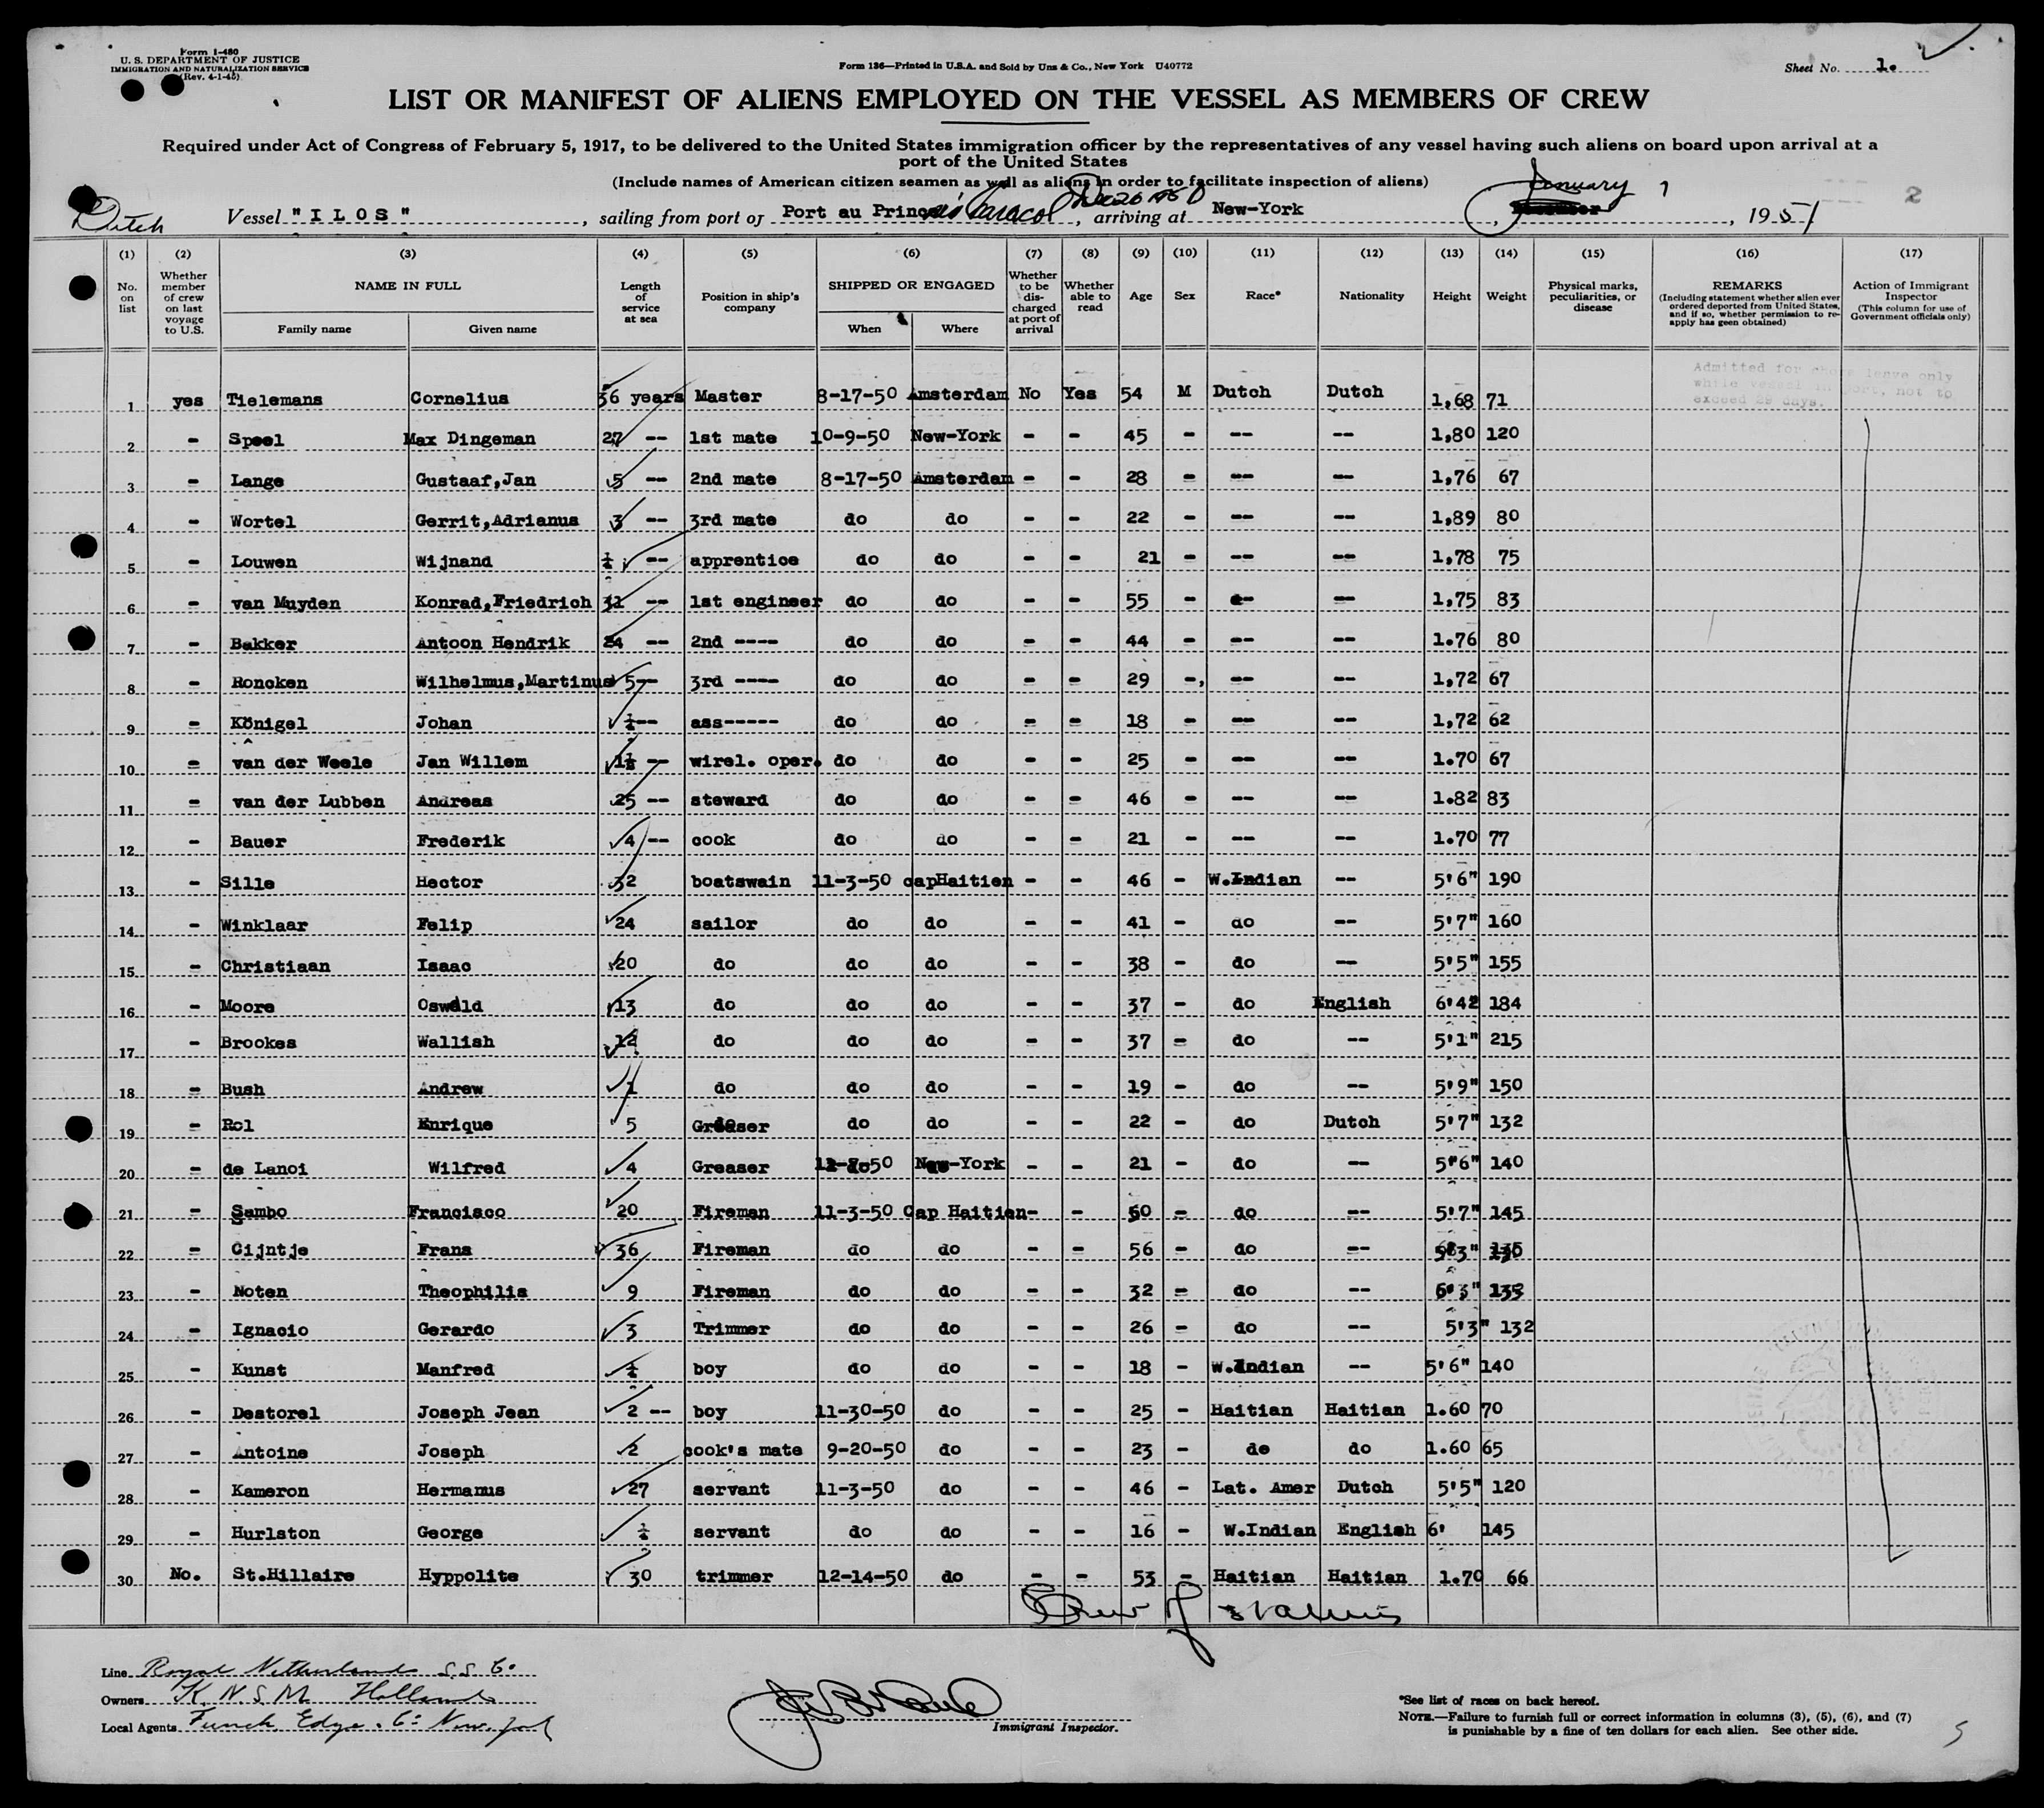 Form I-480
U. S. DEPARTMENT OF JUSTICE
IMMIGRATION AND NATURALIZATION SERVICE
(Rev. 4-1-45)
Form 136—Printed in U.S.A. and Sold by Unz & Co., New York U40772
Sheet No. 1.
LIST OR MANIFEST OF ALIENS EMPLOYED ON THE VESSEL AS MEMBERS OF CREW
Required under Act of Congress of February 5, 1917, to be delivered to the United States immigration officer by the representatives of any vessel having such aliens on board upon arrival at a
port of the United States
(Include names of American citizen seamen as well as aliens in order to facilitate inspection of aliens)
Dutch Vessel "ILOS", sailing from port of Port au Prince, arriving at New-York, January 1, 1951
2
(1) (2) (3) (4) (5) (6) (7) (8) (9) (10) (11) (12) (13) (14) (15) (16) (17)
No. on list
Whether member of crew on last voyage to U.S.
NAME IN FULL
Family name Given name
Length of service at sea
Position in ship's company
SHIPPED OR ENGAGED
When Where
Whether to be discharged at port of arrival
Whether able to read
Age Sex Race* Nationality Height Weight
Physical marks, peculiarities, or disease
REMARKS
(Including statement whether alien ever ordered deported from United States, and if so, whether permission to re-apply has geen obtained)
Action of Immigrant Inspector
(This column for use of Government officials only)
Admitted for shore leave only
while vessel in port, not to
exceed 29 days.
1 yes Tielemans Cornelius 36 years Master 8-17-50 Amsterdam No Yes 54 M Dutch Dutch 1,68 71
2 - Speel Max Dingeman 27 -- 1st mate 10-9-50 New-York - - 45 - -- -- 1,80 120
3 - Lange Gustaaf,Jan 5 -- 2nd mate 8-17-50 Amsterdam - - 28 - -- -- 1,76 67
4 - Wortel Gerrit,Adrianus 3 -- 3rd mate do do - - 22 - -- -- 1,89 80
5 - Louwen Wijnand -- apprentice do do - - 21 - -- -- 1,78 75
6 - van Muyden Konrad,Friedrich 31 -- 1st engineer do do - - 55 - -- -- 1,75 83
7 - Bakker Antoon Hendrik 24 -- 2nd ---- do do - - 44 - -- -- 1.76 80
8 - Roncken Wilhelmus,Martinus 5-- 3rd ---- do do - - 29 -, -- -- 1,72 67
9 - Königel Johan -- ass----- do do - - 18 - -- -- 1,72 62
10 - van der Weele Jan Willem 1½ -- wirel. oper. do do - - 25 - -- -- 1.70 67
11 - van der Lubben Andreas 25 -- steward do do - - 46 - -- -- 1.82 83
12 - Bauer Frederik 4 -- cook do do - - 21 - -- -- 1.70 77
13 - Sille Hector 32 boatswain 11-3-50 capHaitien - - 46 - W.Indian -- 5'6" 190
14 - Winklaar Felip 24 sailor do do - - 41 - do -- 5'7" 160
15 - Christiaan Isaac 20 do do do - - 38 - do -- 5'5" 155
16 - Moore Oswald 13 do do do - - 37 - do English 6'42 184
17 - Brookes Wallish 12 do do do - - 37 - do -- 5'1" 215
18 - Bush Andrew 1 do do do - - 19 - do -- 5'9" 150
19 - Rol Enrique 5 Greaser do do - - 22 - do Dutch 5'7" 132
20 - de Lanoi Wilfred 4 Greaser New-York - - 21 - do -- 5"6" 140
21 - Sambo Francisco 20 Fireman 11-3-50 Cap Haitien- - 50 - do -- 5'7" 145
22 - Cijntje Frans 36 Fireman do do - - 56 - do --
23 - Noten Theophilis 9 Fireman do do - - 32 - do -- 6'3" 135
24 - Ignacio Gerardo 3 Trimmer do do - - 26 - do -- 5'3" 132
25 - Kunst Manfred boy do do - - 18 - W.Indian -- 5'6" 140
26 - Destorel Joseph Jean 2 -- boy 11-30-50 do - - 25 - Haitian Haitian 1.60 70
27 - Antoine Joseph 2 cook's mate 9-20-50 do - - 23 - do do 1.60 65
28 - Kameron Hermanus 27 servant 11-3-50 do - - 46 - Lat. Amer Dutch 5'5" 120
29 - Hurlston George servant do do - - 16 - W.Indian English 6' 145
30 No. St.Hillaire Hyppolite 30 trimmer 12-14-50 do - - 53 - Haitian Haitian 1.70 66
Line Royal Netherlands S.S. Co
Owners K.N.S.M Holland
Local Agents Funch Edye & Co New York
Immigrant Inspector.
*See list of races on back hereof.
NOTE.—Failure to furnish full or correct information in columns (3), (5), (6), and (7)
is punishable by a fine of ten dollars for each alien. See other side.
5